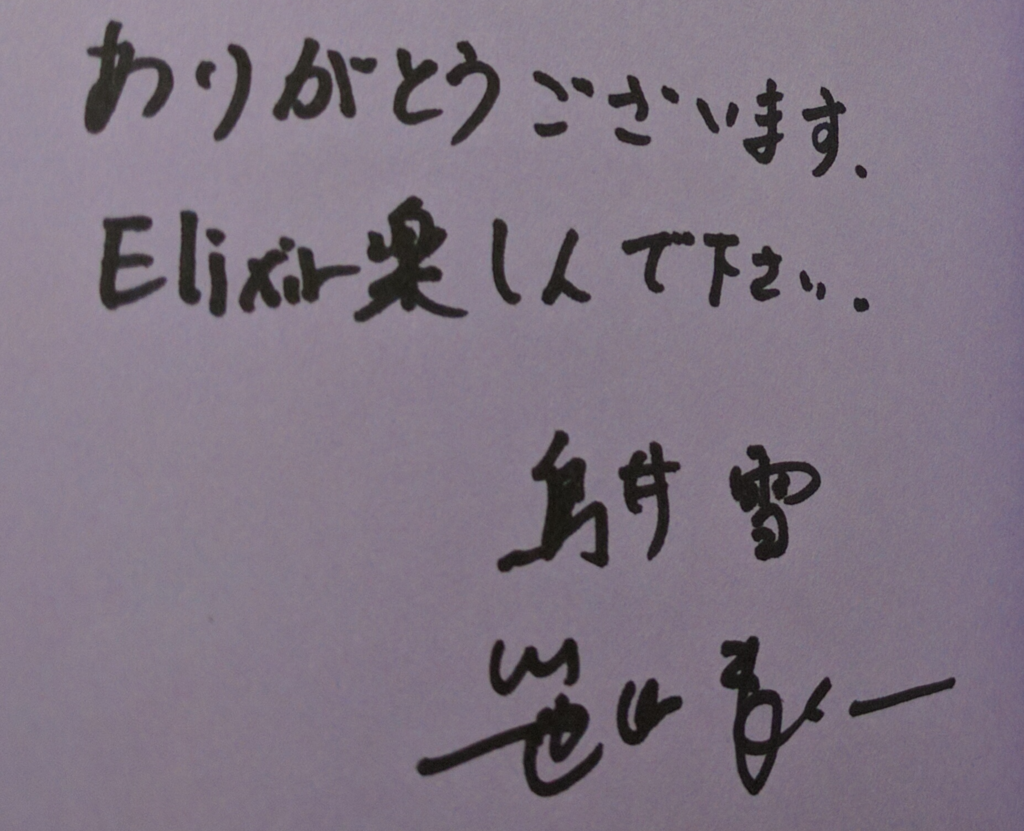 ありがとうございます.
Elixir楽しんで下さい.
鳥井 雪